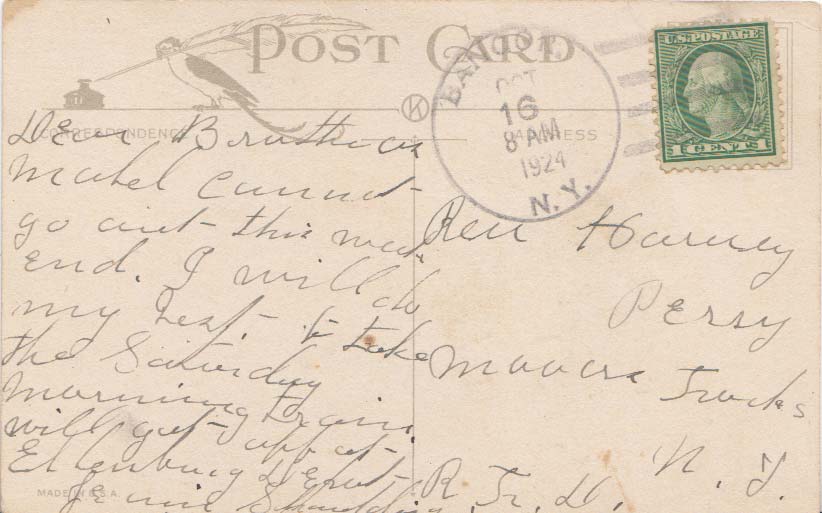 POST CARD
CORRESPONDENCE
ADDRESS
BANGOR
OCT
16
8 AM
1924
N.Y.
U.S. POSTAGE
1 CENT 1
Dear Brother
Mabel cannot
go out this week
end. I will do
my best to take
the Saturday
morning train.
will get off at
Ellenburg Depot
Jennie
Rev Harvey
Perry
Mooers Forks
N. Y.
R. F. D.
MADE IN U.S.A.